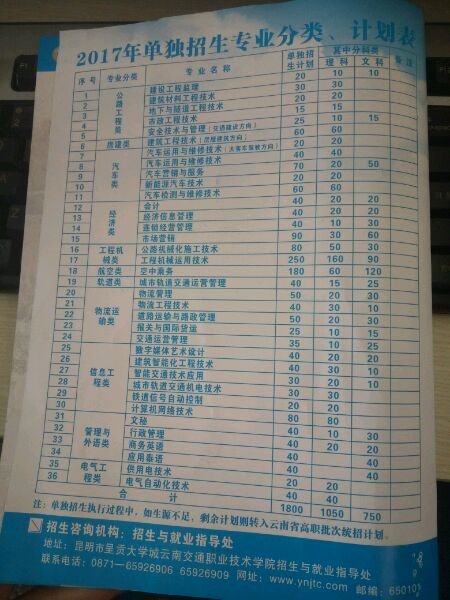 2017年单独招生专业分类、计划表
序号 专业分类 专业名称 单独招生计划 其中分科类 备注
理科 文科
1 公路工程类 建设工程监理 20 10 10
2 建筑材料工程技术 30 30
3 地下与隧道工程技术 15 15
4 市政工程技术 25 10 15
5 安全技术与管理(交通建设方向) 20 20
6 房建类 建筑工程技术(房屋建筑方向) 60 60
7 汽车类 汽车运用与维修技术(大客车驾驶方向) 40 40
8 汽车运用与维修技术 70 20 50
9 汽车营销与服务 20 20
10 新能源汽车技术 20 20
11 汽车检测与维修技术 60 60
12 经济类 会计 40 20 20
13 经济信息管理 40 20 20
14 连锁经营管理 40 10 30
15 市场营销 90 30 60
16 工程机械类 公路机械化施工技术 80 50 30
17 工程机械运用技术 250 160 90
18 航空类 空中乘务 180 60 120
19 轨道类 城市轨道交通运营管理 40 15 25
20 物流运输类 物流管理 50 20 30
21 物流工程技术 40 30 10
22 道路运输与路政管理 50 20 30
23 报关与国际货运 25 10 15
24 交通运营管理 35
25 信息工程类 数字媒体艺术设计 40
26 建筑智能化工程技术 40
27 智能交通技术应用
28 城市轨道交通机电技术
29 铁道信号自动控制
30 计算机网络技术
31 管理与外语类 文秘
32 行政管理 40 10 30
33 商务英语 40 20 20
34 应用泰语
35 电气工程类 供用电技术
36 电气自动化技术
合计 1800 1050 750
注：单独招生执行过程中，如生源不足，剩余计划则转入云南省高职批次统招计划。
招生咨询机构：招生与就业指导处
地址：昆明市呈贡大学城云南交通职业技术学院招生与就业指导处
联系电话：0871—65926906 65926909 网址：www.ynjtc.com 邮编：65010